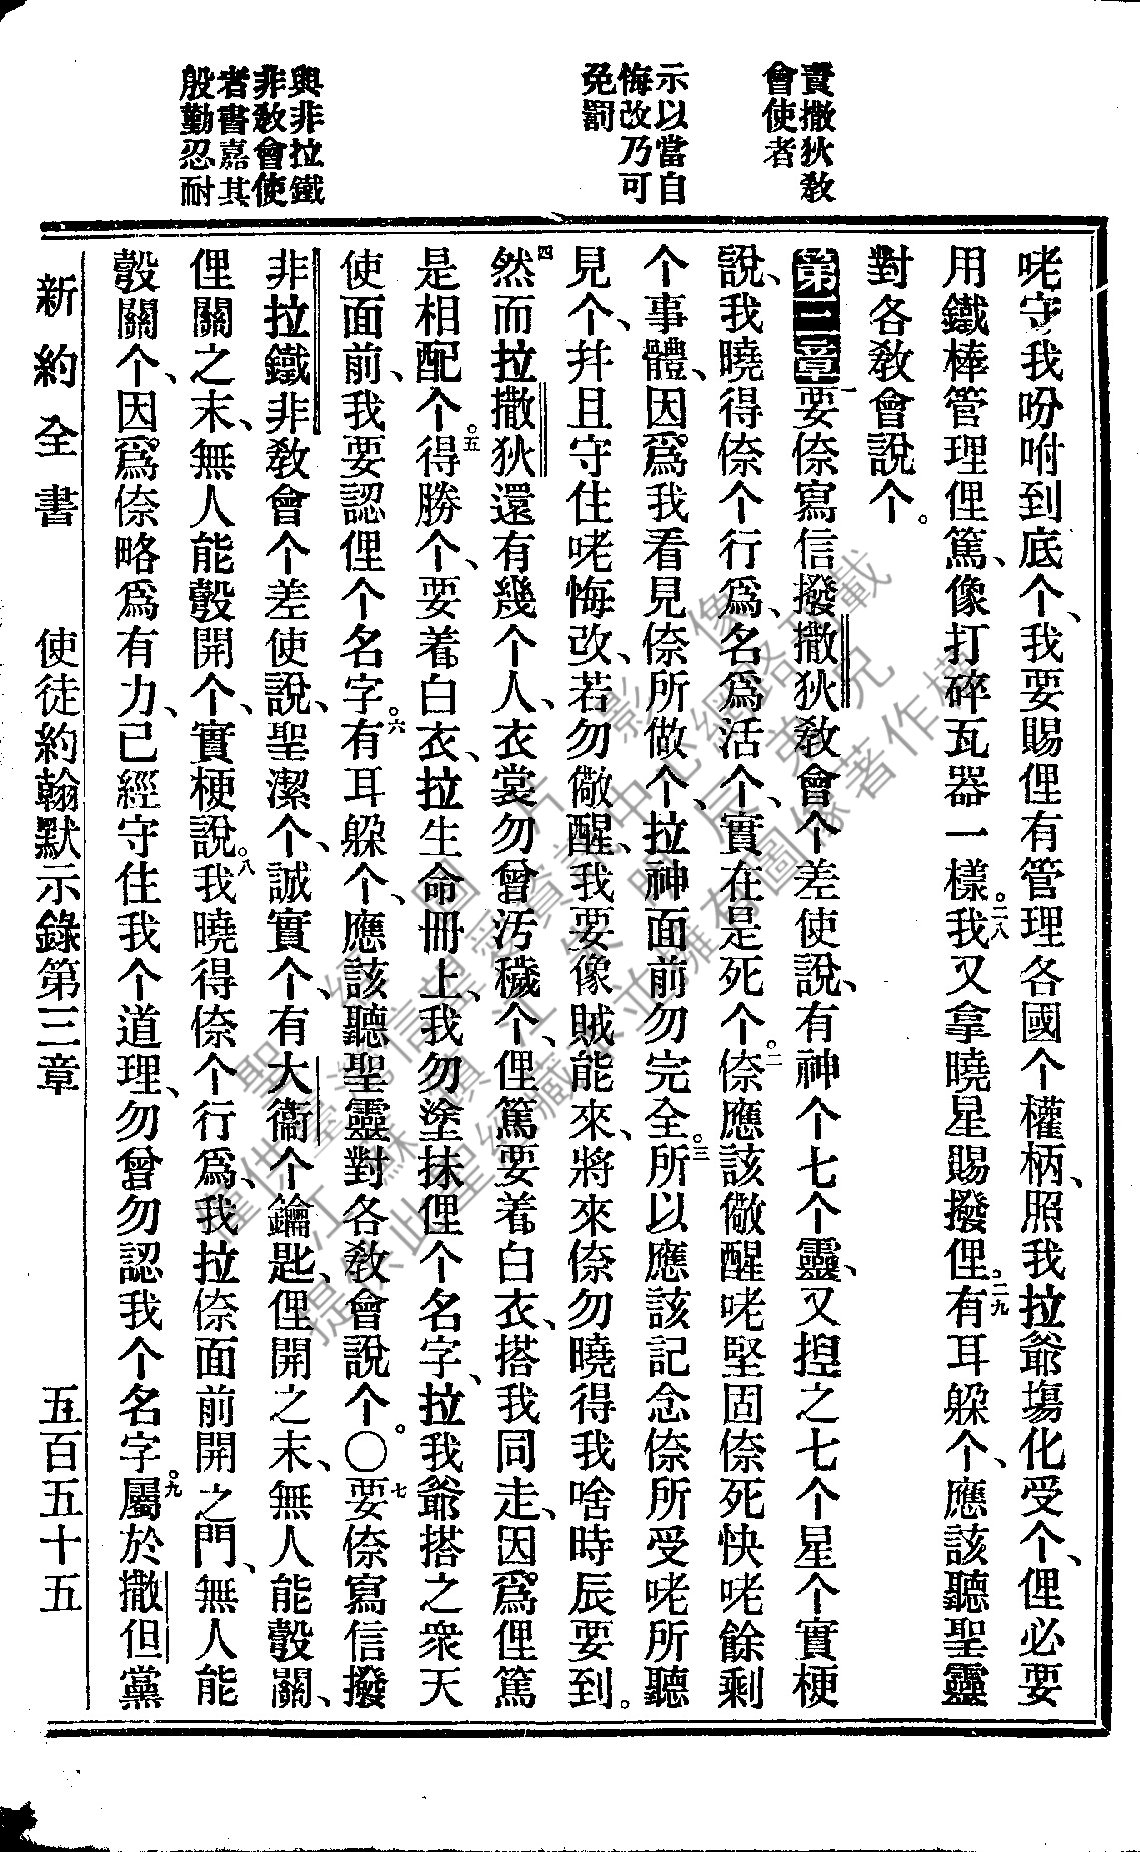 責撒狄敎
會使者
示以當自
悔改乃可
免罰
與非拉鐵
非敎會使
者書嘉其
殷勤忍耐
咾守我吩咐到底个、我要賜俚有管理各國个權柄、照我拉爺塲化受个、俚必要
用鐵棒管理俚篤、像打碎瓦器一樣。二八我又拿曉星賜撥俚。二九有耳朶个、應該聽聖靈
對各敎會說个。
第三章一要倷寫信撥撒狄敎會个差使說、有神个七个靈、又揑之七个星个實梗
說、我曉得倷个行爲、名爲活个、實在是死个。二倷應該儆醒咾堅固倷死快咾餘剩
个事體、因爲我看見倷所做个、拉神面前勿完全。三所以應該記念倷所受咾所聽
見个、幷且守住咾悔改、若勿儆醒、我要像賊能來、將來倷勿曉得我啥時辰要到。
四然而拉撒狄還有幾个人、衣裳勿曾汚穢个、俚篤要着白衣、搭我同走、因爲俚篤
是相配个。五得勝个、要着白衣、拉生命冊上、我勿塗抹俚个名字、拉我爺搭之衆天
使面前、我要認俚个名字。六有耳朶个、應該聽聖靈對各敎會說个。〇七要倷寫信撥
非拉鐵非敎會个差使說、聖潔个、誠實个、有大衞个鑰匙、俚開之末、無人能彀關、
俚關之末、無人能彀開个、實梗說。八我曉得倷个行爲、我拉倷面前開之門、無人能
彀關个、因爲倷略爲有力、已經守住我个道理、勿曾勿認我个名字。九屬於撒但黨
新約全書 使徒約翰默示錄第三章 五百五十五